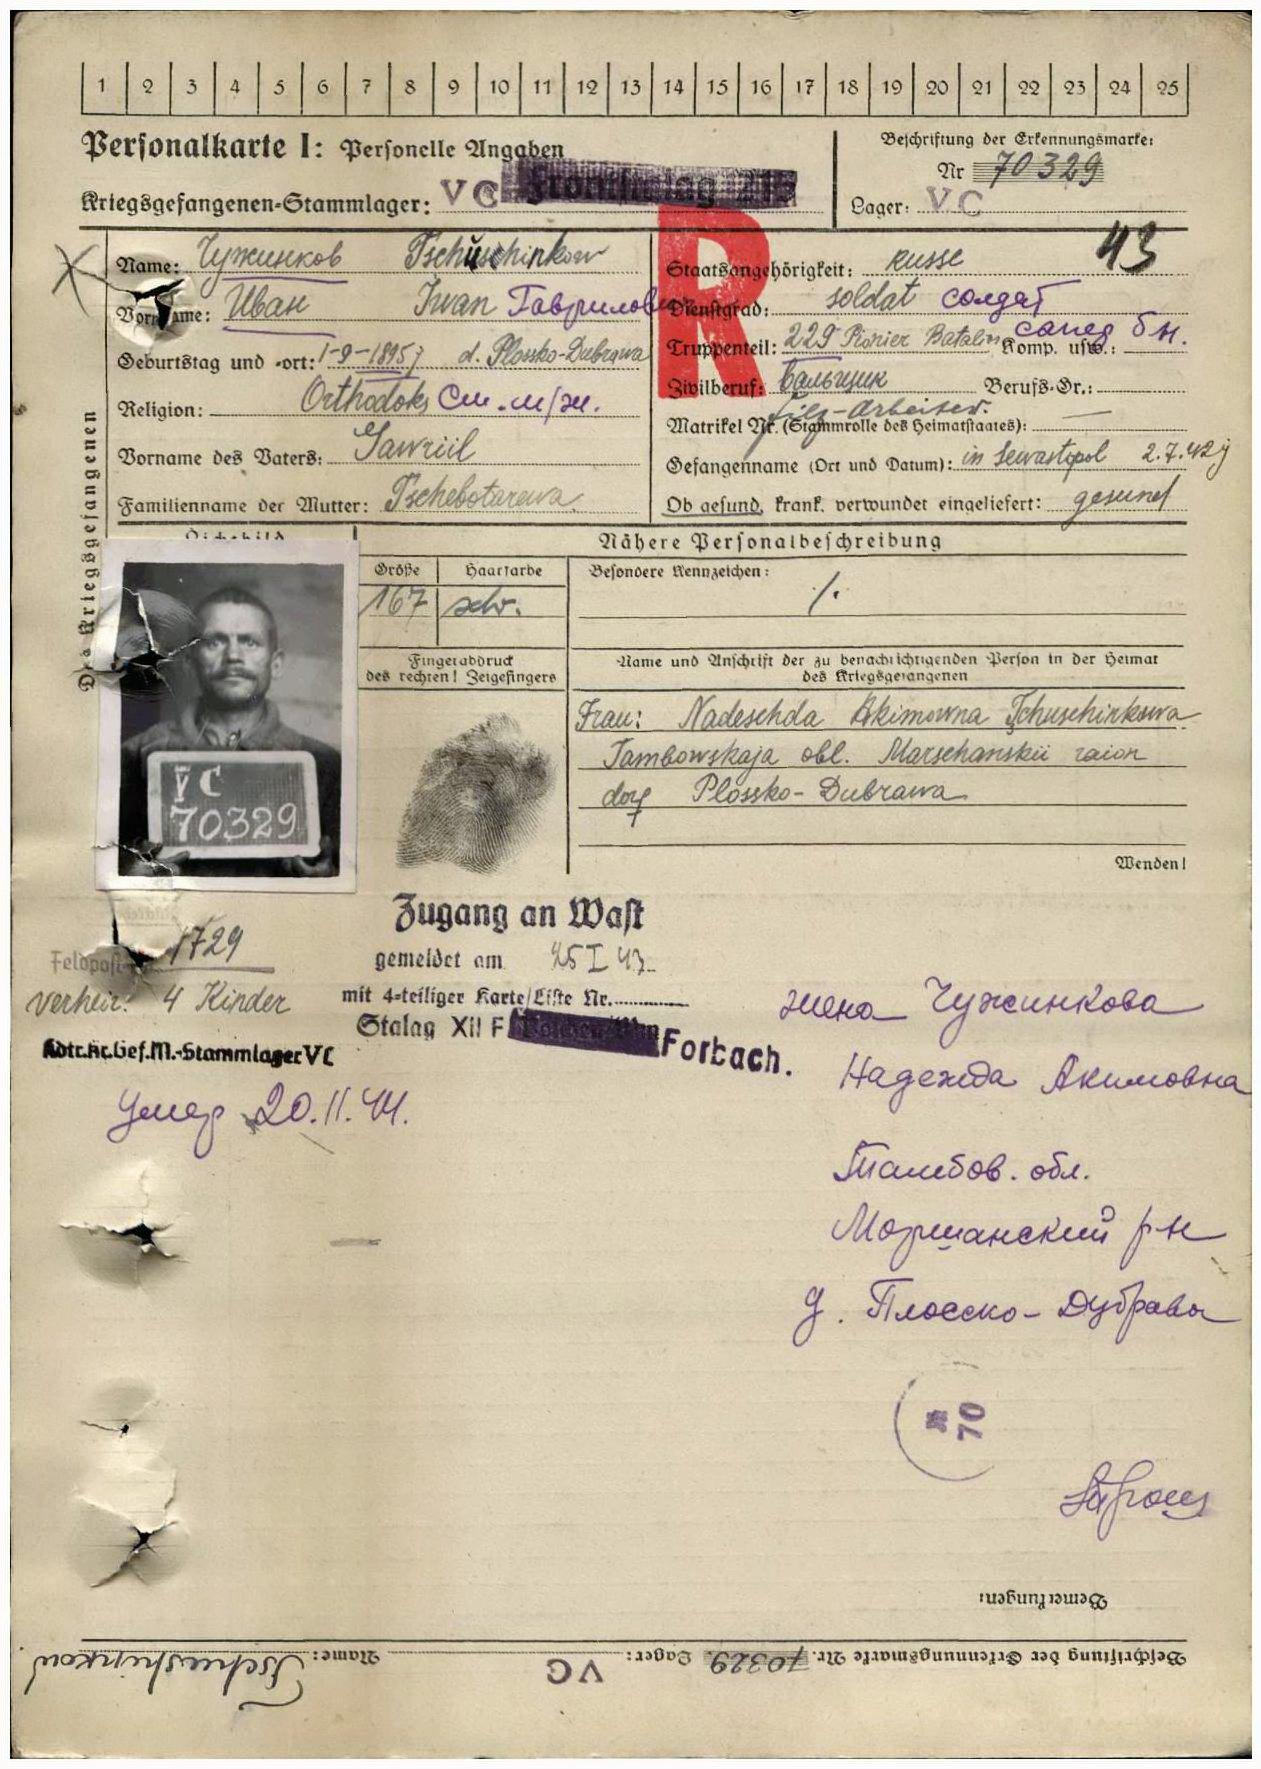 1 2 3 4 5 6 7 8 9 10 11 12 13 14 15 16 17 18 19 20 21 22 23 24 25
Personalkarte I: Personelle Angaben
Beschriftung der Erkennungsmarke:
Nr 70329
Kriegsgefangenen-Stammlager: VC Frontstalag
Lager: VC
Des Kriegsgefangenen
Name: Чужинков Tschuschinkow
Staatsangehörigkeit: russe 43
R
Vorname: Иван Iwan Гаврилович
Dienstgrad: soldat солдат
Geburtstag und -ort: 1-9-1895 d. Plossko-Dubrawa
Truppenteil: 229 Pionier Batalion Komp. usw.: сапер бн.
Religion: Orthodoks
Zivilberuf: Вальщик Berufs-Gr.:
Filz-Arbeiter.
Matrikel Nr. (Stammrolle des Heimatstaates): —
Vorname des Vaters: Gawriil
Gefangenname (Ort und Datum): in Sewastopol 2.7.42
Familienname der Mutter: Tschebotarewa
Ob gesund, krank, verwundet eingeliefert: gesund
Lichtbild
Nähere Personalbeschreibung
Größe Haarfarbe Besondere Kennzeichen:
167 schw. /.
Fingerabdruck
des rechten! Zeigefingers
Name und Anschrift der zu benachrichtigenden Person in der Heimat
des Kriegsgefangenen
Frau: Nadeschda Akimowna Tschuschinkowa
Tambowskaja obl. Marschanskii raion
dorf Plossko-Dubrawa
VC
70329
Wenden!
Zugang an Wast
gemeldet am 25 I 43
mit 4-teiliger Karte/Liste Nr.
Stalag XII F Forbach.
Feldpost 1729
verheir. 4 Kinder
Kdtr.Kr.Gef.M.-Stammlager VC
Умер 20.11.44.
жена Чужинкова
Надежда Акимовна
Тамбов. обл.
Моршанский р-н
д. Плосско-Дубрава
70
Bemerkungen:
Beschriftung der Erkennungsmarke Nr. 70329 Lager: VC Name: Tschuschinkow